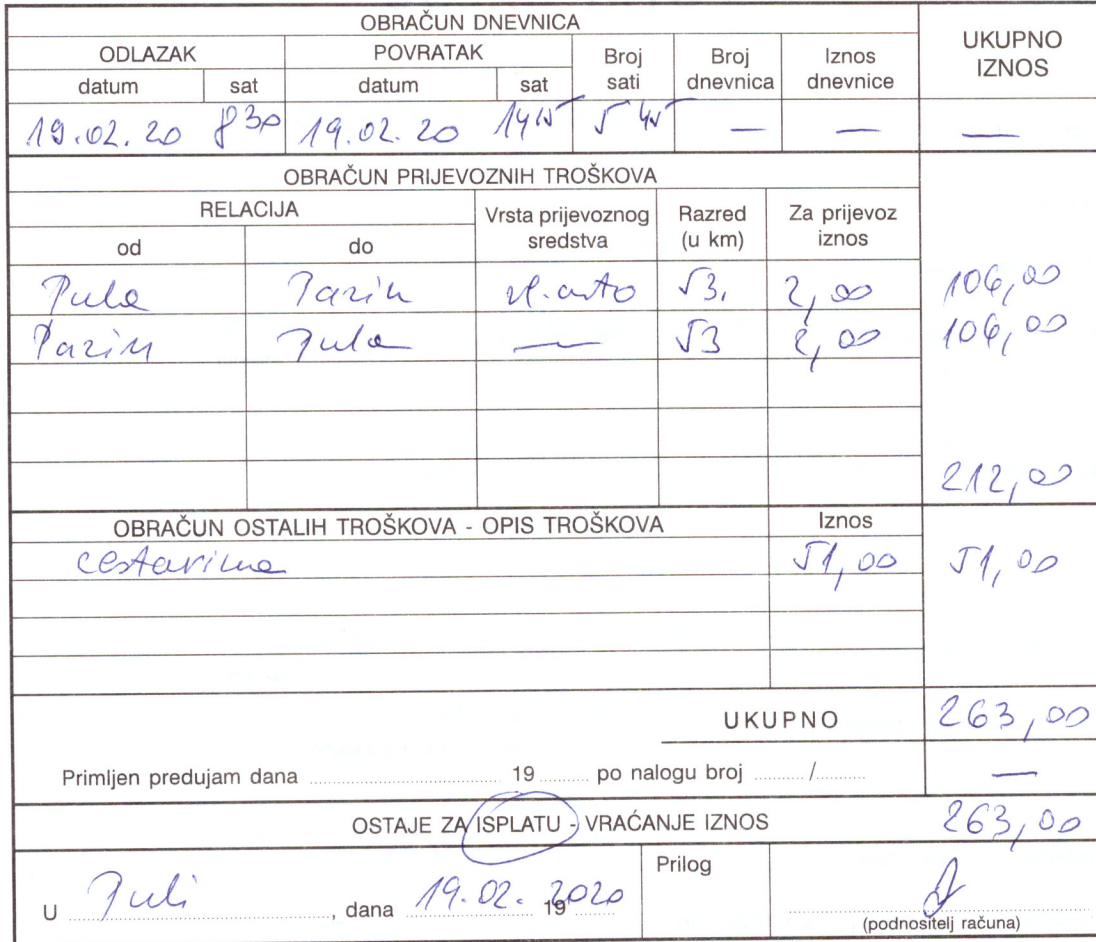 OBRAČUN DNEVNICA
UKUPNO IZNOS
ODLAZAK POVRATAK Broj sati Broj dnevnica Iznos dnevnice
datum sat datum sat
19.02.20 8 30 19.02.20 14 15 5 45 — — —
OBRAČUN PRIJEVOZNIH TROŠKOVA
RELACIJA Vrsta prijevoznog sredstva Razred (u km) Za prijevoz iznos
od do
Pula Pazin vl. auto 53, 2,00 106,00
Pazin Pula — 53 2,00 106,00
212,00
OBRAČUN OSTALIH TROŠKOVA - OPIS TROŠKOVA Iznos
cestarina 51,00 51,00
UKUPNO 263,00
Primljen predujam dana 19 po nalogu broj / —
OSTAJE ZA ISPLATU - VRAĆANJE IZNOS 263,00
Prilog
U Puli, dana 19.02.2020 19
(podnositelj računa)